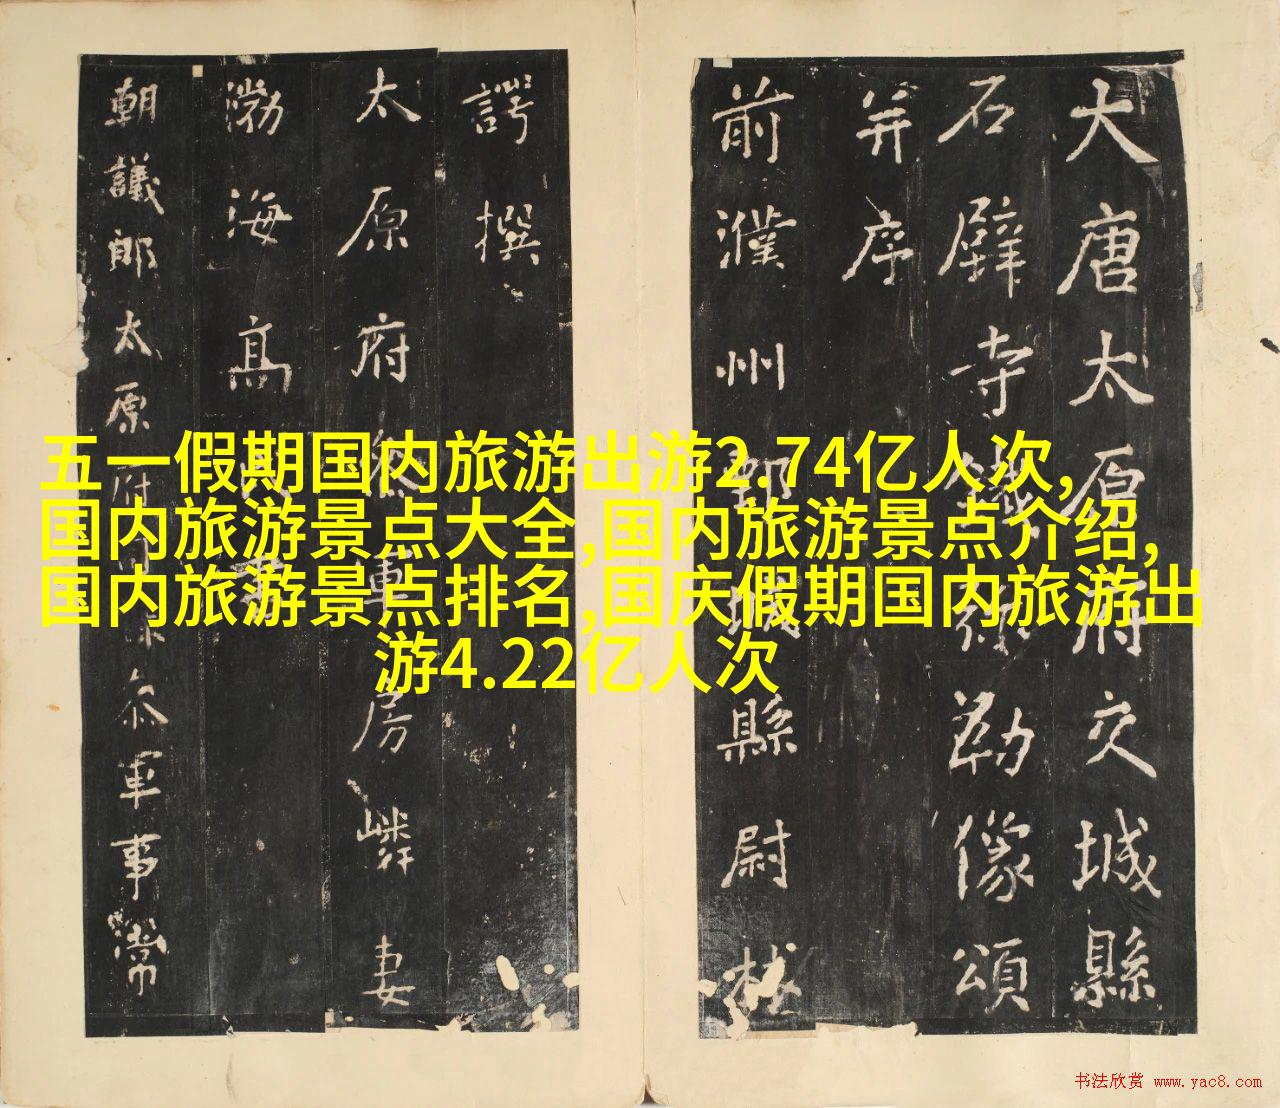 大唐太原府交城縣
石壁寺鐵弥勒像頌
并序
前濮州鄄城縣尉林
諤撰
太原府叅軍房嶙妻
渤海髙
朝議郎太原府司叅軍事常
五一假期国内旅游出游2.74亿人次,
国内旅游景点大全,国内旅游景点介绍,
国内旅游景点排名,国庆假期国内旅游出
游4.22亿人次
书法欣赏 www.yac8.com